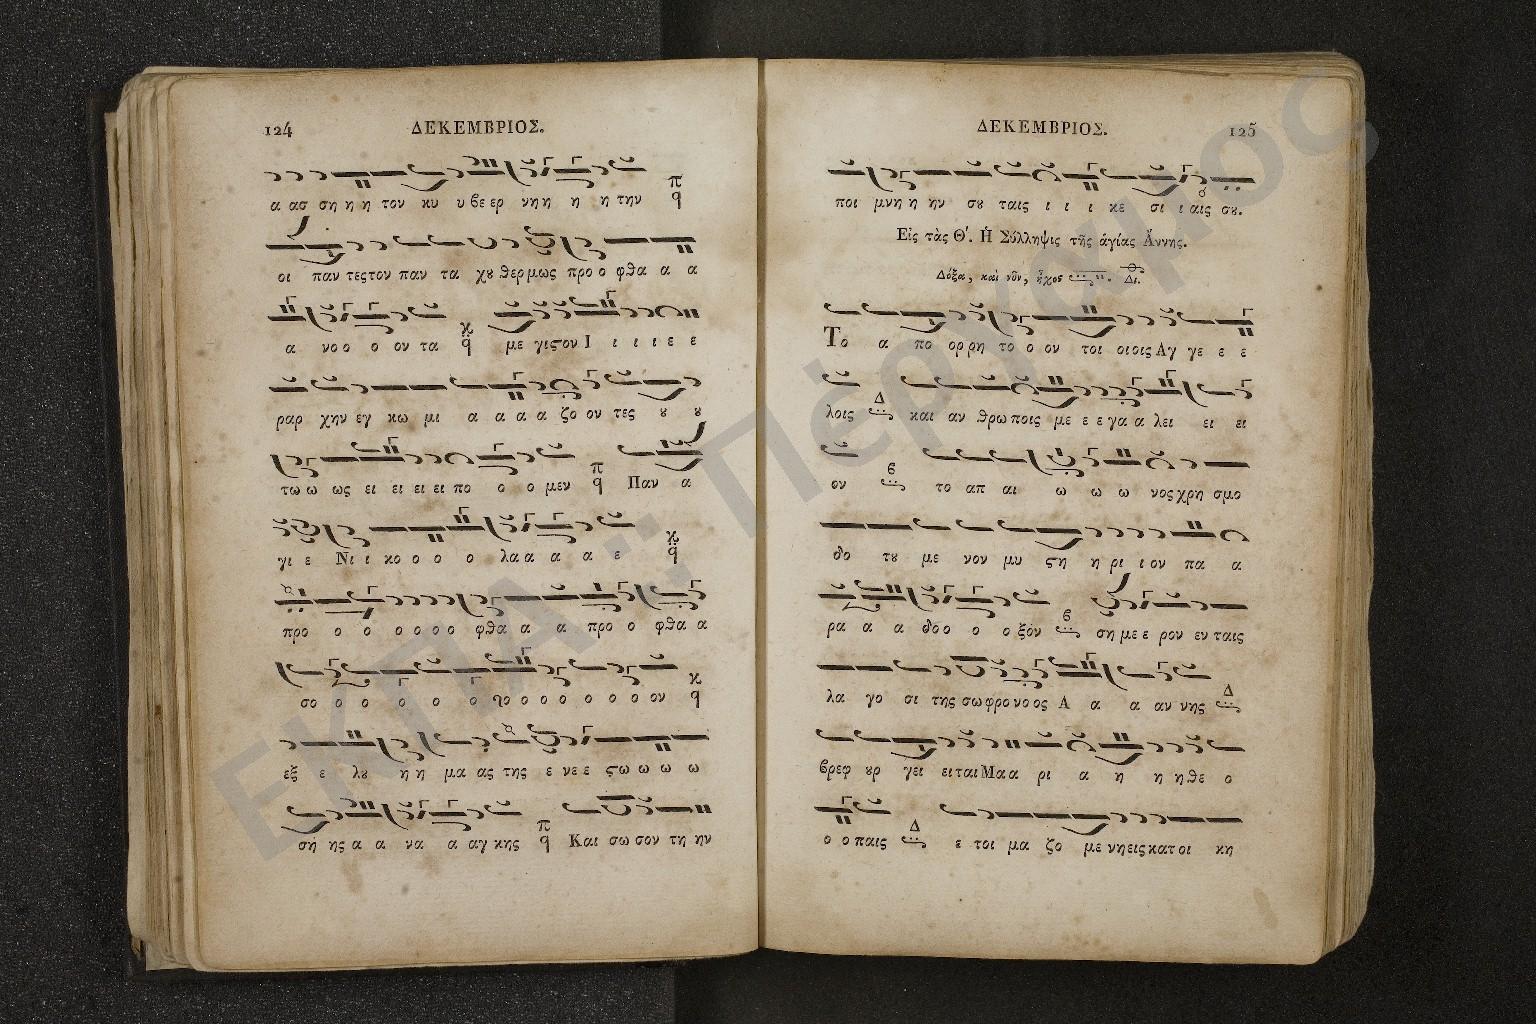 124
ΔΕΚΕΜΒΡΙΟΣ.
α ασ ση η η τον κυ υ βε ερ νη η η η την
οι παν τες τον παν τα χȣ θερ μως προ ο φθα α α
α νο ο ο ον τα με γις ον Ι ι ι ι ε ε
ραρ χην εγ κω μι α α α α ζο ον τες ȣ ȣ
τω ω ως ει ει ει ει πο ο ο μεν Παν α
γι ε Νι ι κο ο ο ο λα α α α ε
προ ο ο ο ο ο ο φθα α α προ ο φθα α
σο ο ο ο ο ο το ο ο ο ο ο ο ον
εξ ε λȣ η η μα ας της ε νε ε ϛω ω ω ω
ση ης α α να α αγ κης Και σω σον τη ην
ΔΕΚΕΜΒΡΙΟΣ.
125
ποι μνη η ην σȣ ταις ι ι ι κε σι ι αις σȣ.
Εἰς τὰς Θ΄. Ἡ Σύλληψις τῆς ἁγίας Ἄννης.
Δόξα, καὶ νῦν, ἦχος Δι.
Το α πο ορ ρη το ο ον τοι οι οις Αγ γε ε ε
λοις και αν θρω ποις με ε ε γα α λει ει ει
ον το απ αι ω ω ω νος χρη σμο
δο τȣ με νον μυ ϛη η ρι ι ον πα α
ρα α α δο ο ο ο ξον ση με ε ρον εν ταις
λα γο σι της σω φρο νο ος Α α α αν νης
βρεφ ȣρ γει ει ται Μα α ρι α η η η θε ο
ο ο παις ε τοι μα ζο με νη εις κατ οι κη
ΕΚΠΑ - Πέργαμος